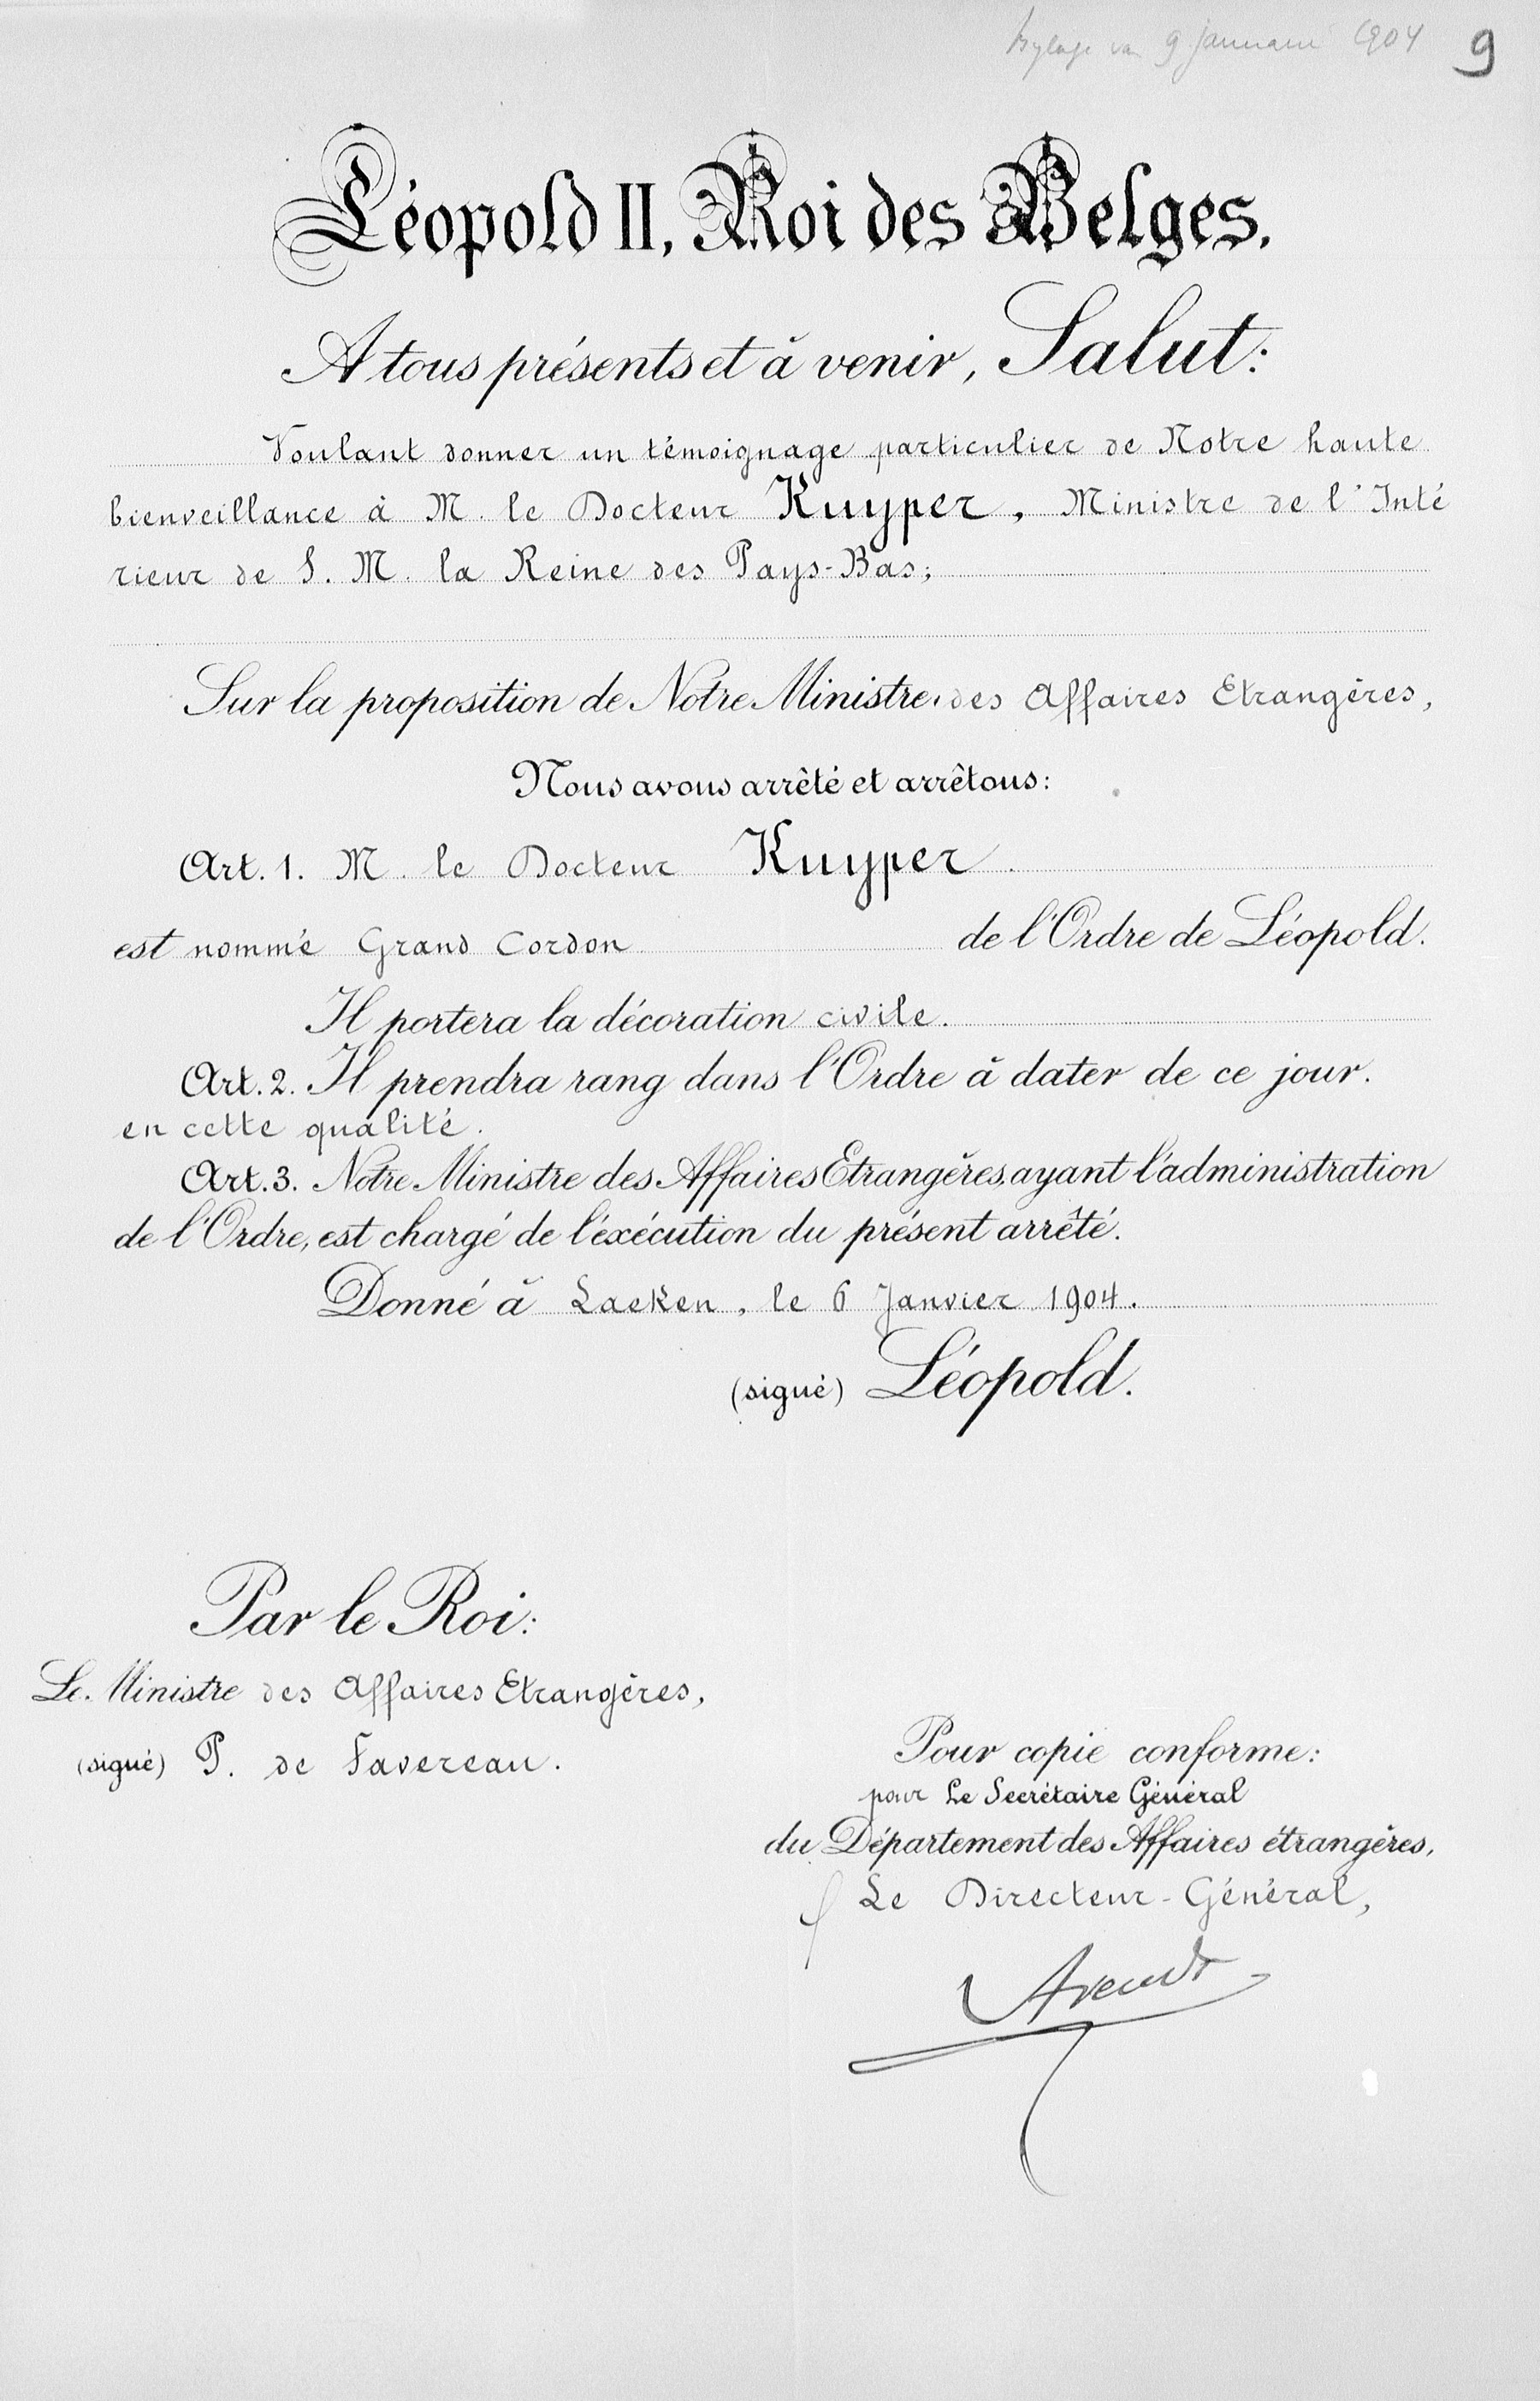 bylage van 9 januari 1904 9
Léopold II, Roi des Belges,
A tous présents et à venir, Salut:
Voulant donner un témoignage particulier de Notre haute
bienveillance à M. le Docteur Kuyper, Ministre de l'Inté
rieur de S. M. la Reine des Pays-Bas;
Sur la proposition de Notre Ministre des Affaires Etrangères,
Nous avons arrêté et arrêtons:
Art. 1. M. le Docteur Kuyper
est nommé Grand Cordon de l'Ordre de Léopold.
Il portera la décoration civile.
Art. 2. Il prendra rang dans l'Ordre à dater de ce jour.
en cette qualité.
Art. 3. Notre Ministre des Affaires Etrangères, ayant l'administration
de l'Ordre, est chargé de l'éxécution du présent arrêté.
Donné à Laeken, le 6 Janvier 1904.
(signé) Léopold.
Par le Roi:
Le Ministre des Affaires Etrangères,
(signé) P. de Favereau.
Pour copie conforme:
pour Le Secrétaire Général
du Département des Affaires étrangères,
Le Directeur-Général,
Arendt